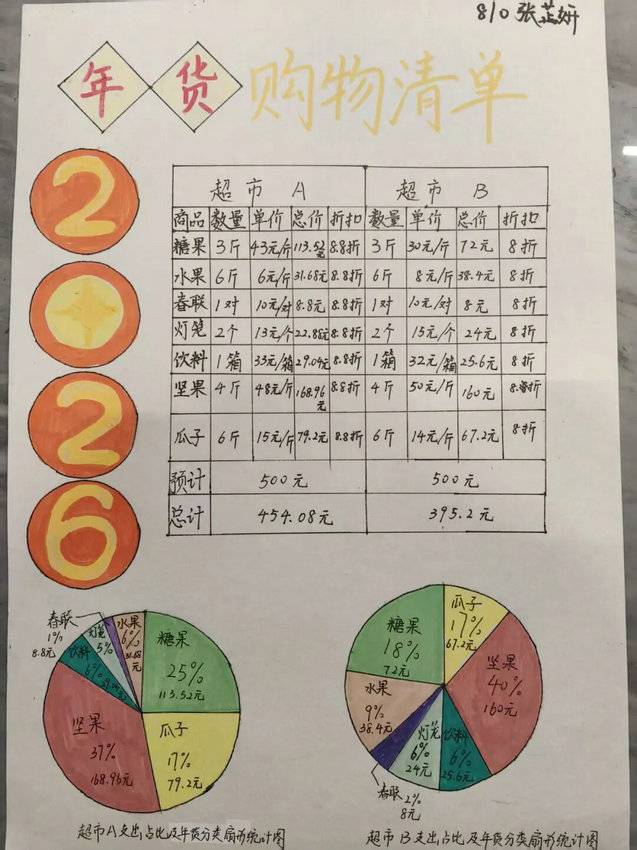 810 张芷妍
年货购物清单
2
0
2
6
超市 A 超市 B
商品 数量 单价 总价 折扣 数量 单价 总价 折扣
糖果 3斤 43元/斤 113.52元 8.8折 3斤 30元/斤 72元 8折
水果 6斤 6元/斤 31.68元 8.8折 6斤 8元/斤 38.4元 8折
春联 1对 10元/对 8.8元 8.8折 1对 10元/对 8元 8折
灯笼 2个 13元/个 22.88元 8.8折 2个 15元/个 24元 8折
饮料 1箱 33元/箱 29.04元 8.8折 1箱 32元/箱 25.6元 8折
坚果 4斤 48元/斤 168.96元 8.8折 4斤 50元/斤 160元 8折
瓜子 6斤 15元/斤 79.2元 8.8折 6斤 14元/斤 67.2元 8折
预计 500元 500元
总计 454.08元 395.2元
春联
1%
8.8元
灯笼
5%
水果
6%
31.68元
糖果
25%
113.52元
饮料
6%
29.04元
坚果
37%
168.96元
瓜子
17%
79.2元
超市A支出占比及年货分类扇形统计图
瓜子
17%
67.2元
糖果
18%
72元
坚果
40%
160元
水果
9%
38.4元
灯笼
6%
24元
饮料
6%
25.6元
春联 2%
8元
超市B支出占比及年货分类扇形统计图